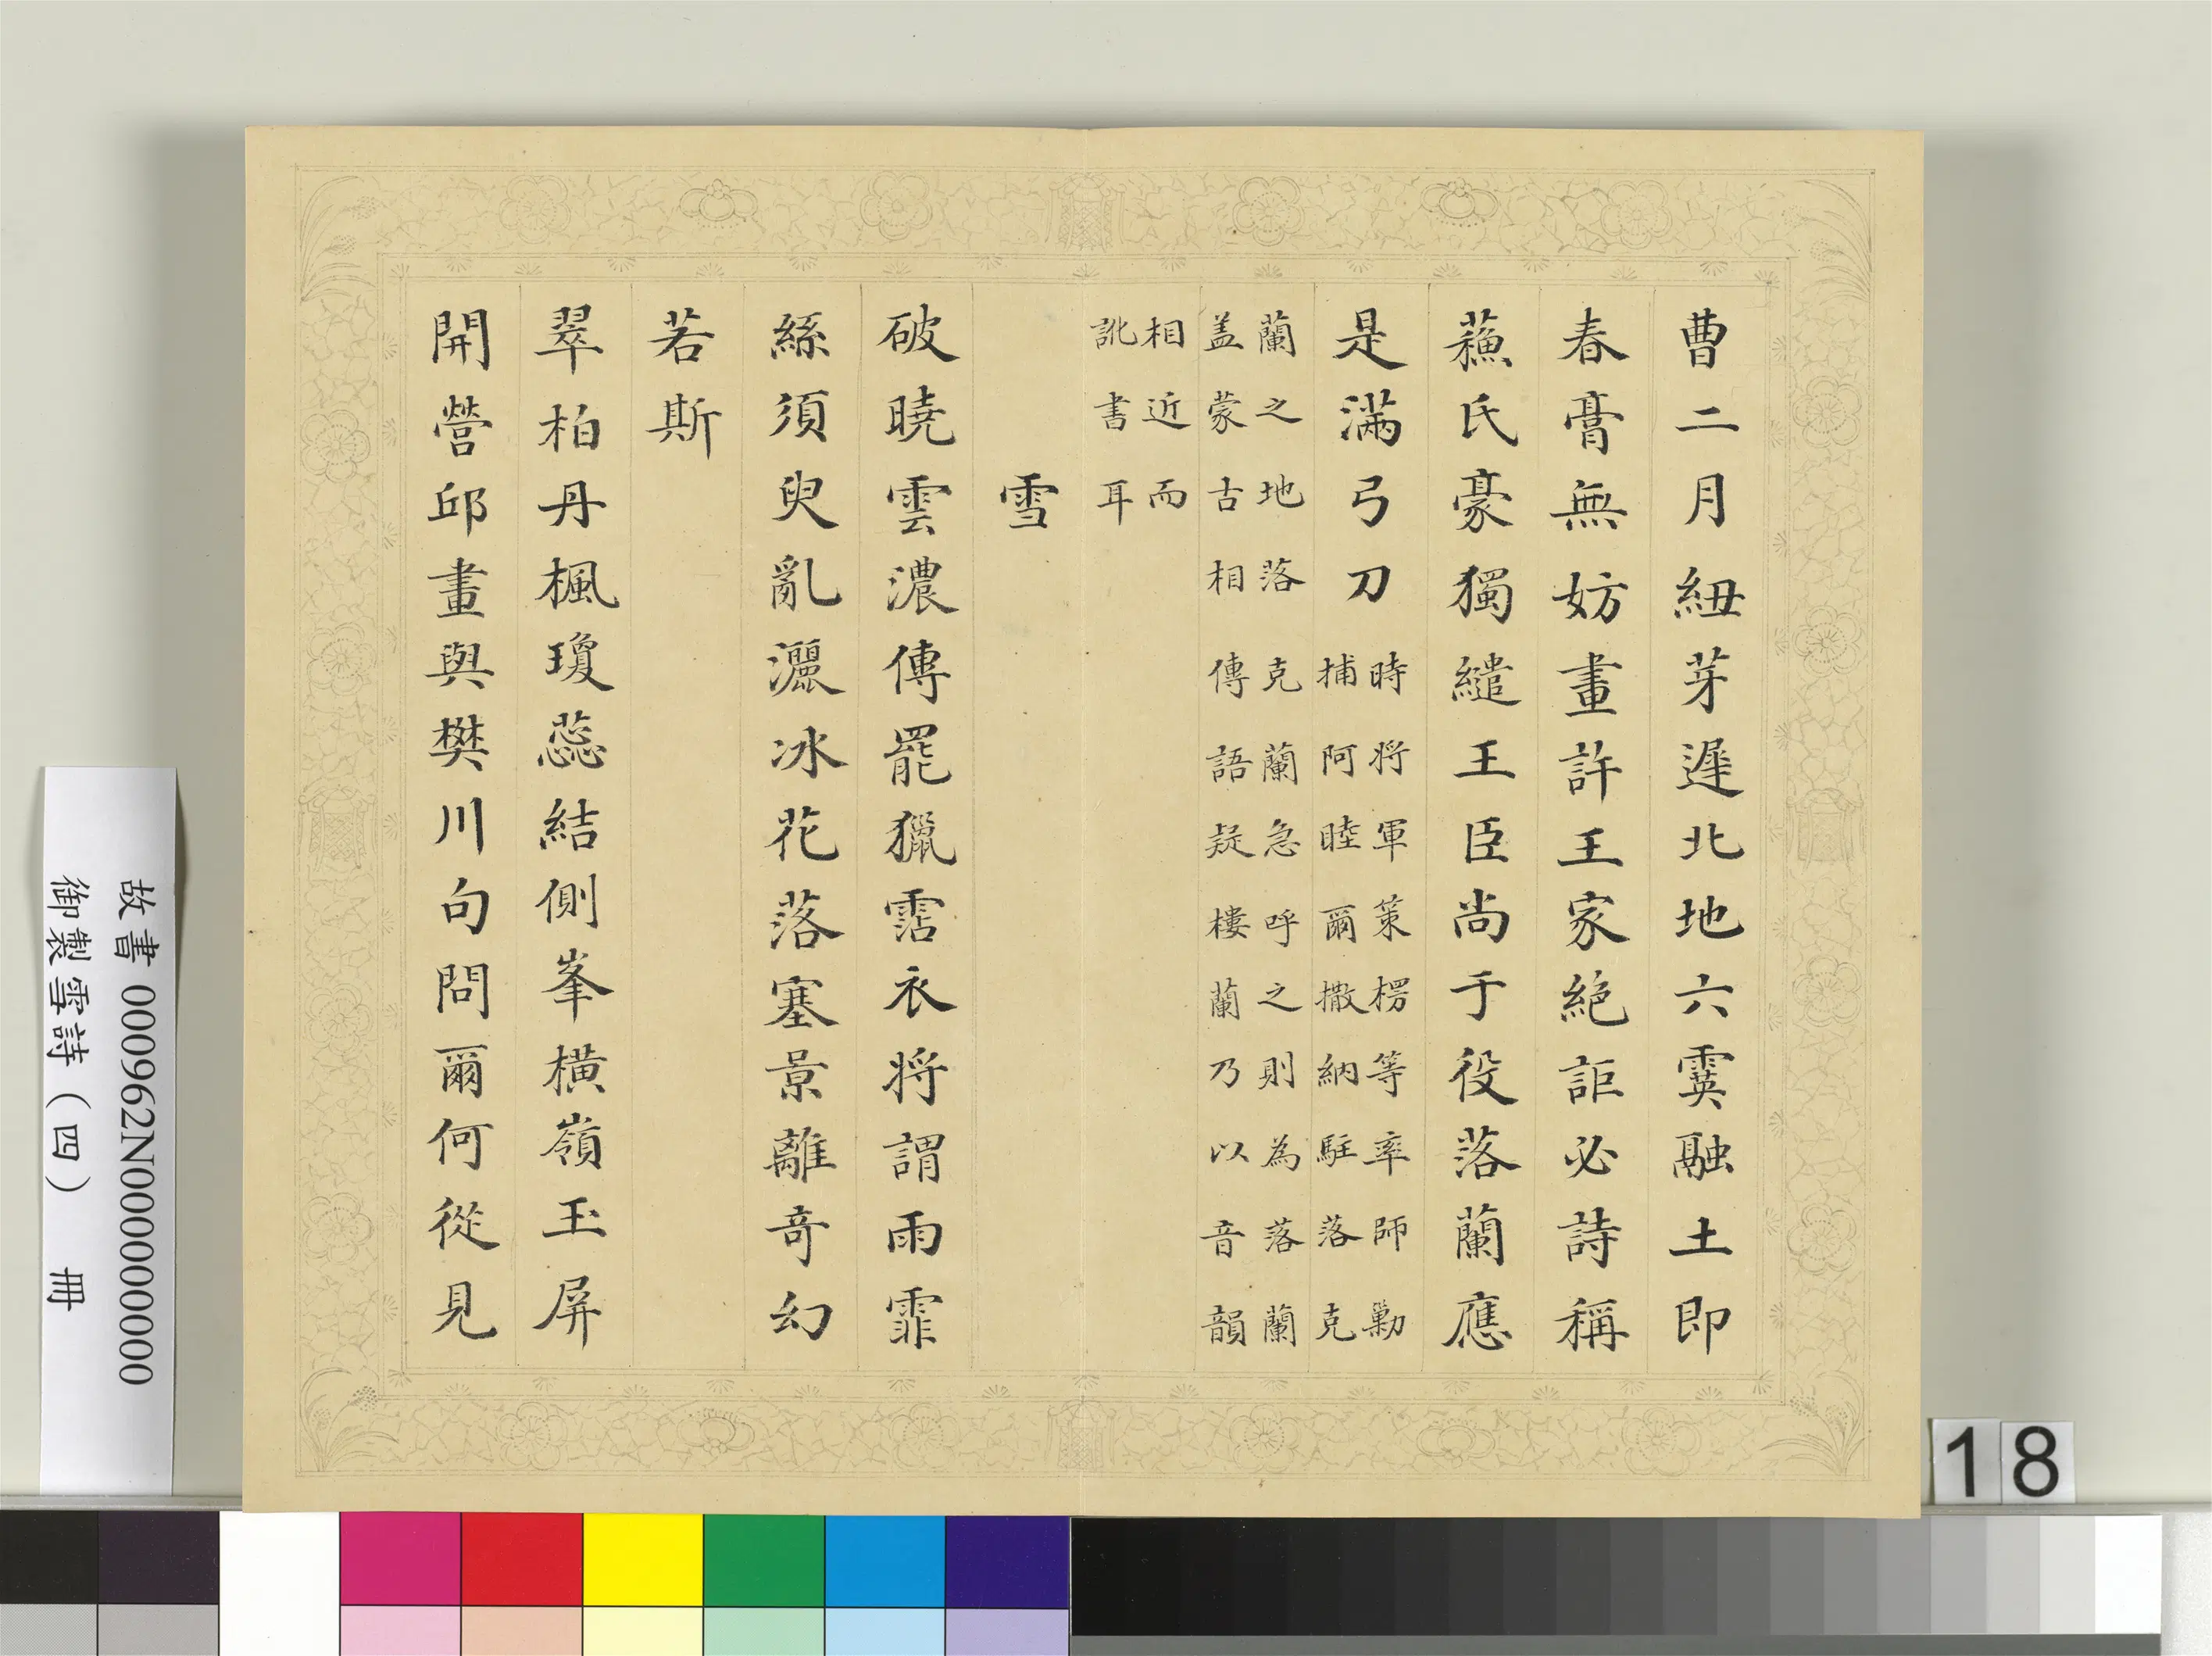 曹二月紐芽遲北地六霙融土即
春膏無妨畫許王家絕詎必詩稱
蘓氏豪獨繾王臣尚于役落蘭應
是滿弓刀
時將軍策楞等率師勦
捕阿睦爾撒納駐落克
蘭之地落克蘭急呼之則為落蘭
盖蒙古相傳語疑樓蘭乃以音韻
相近而
訛書耳
雪
破曉雲濃傳罷獵霑衣將謂雨霏
絲須臾亂灑冰花落塞景離奇幻
若斯
翠柏丹楓瓊蕊結側峯橫嶺玉屏
開營邱畫與樊川句問爾何從見
故書 000962N000000000
御製雪詩(四) 冊
18